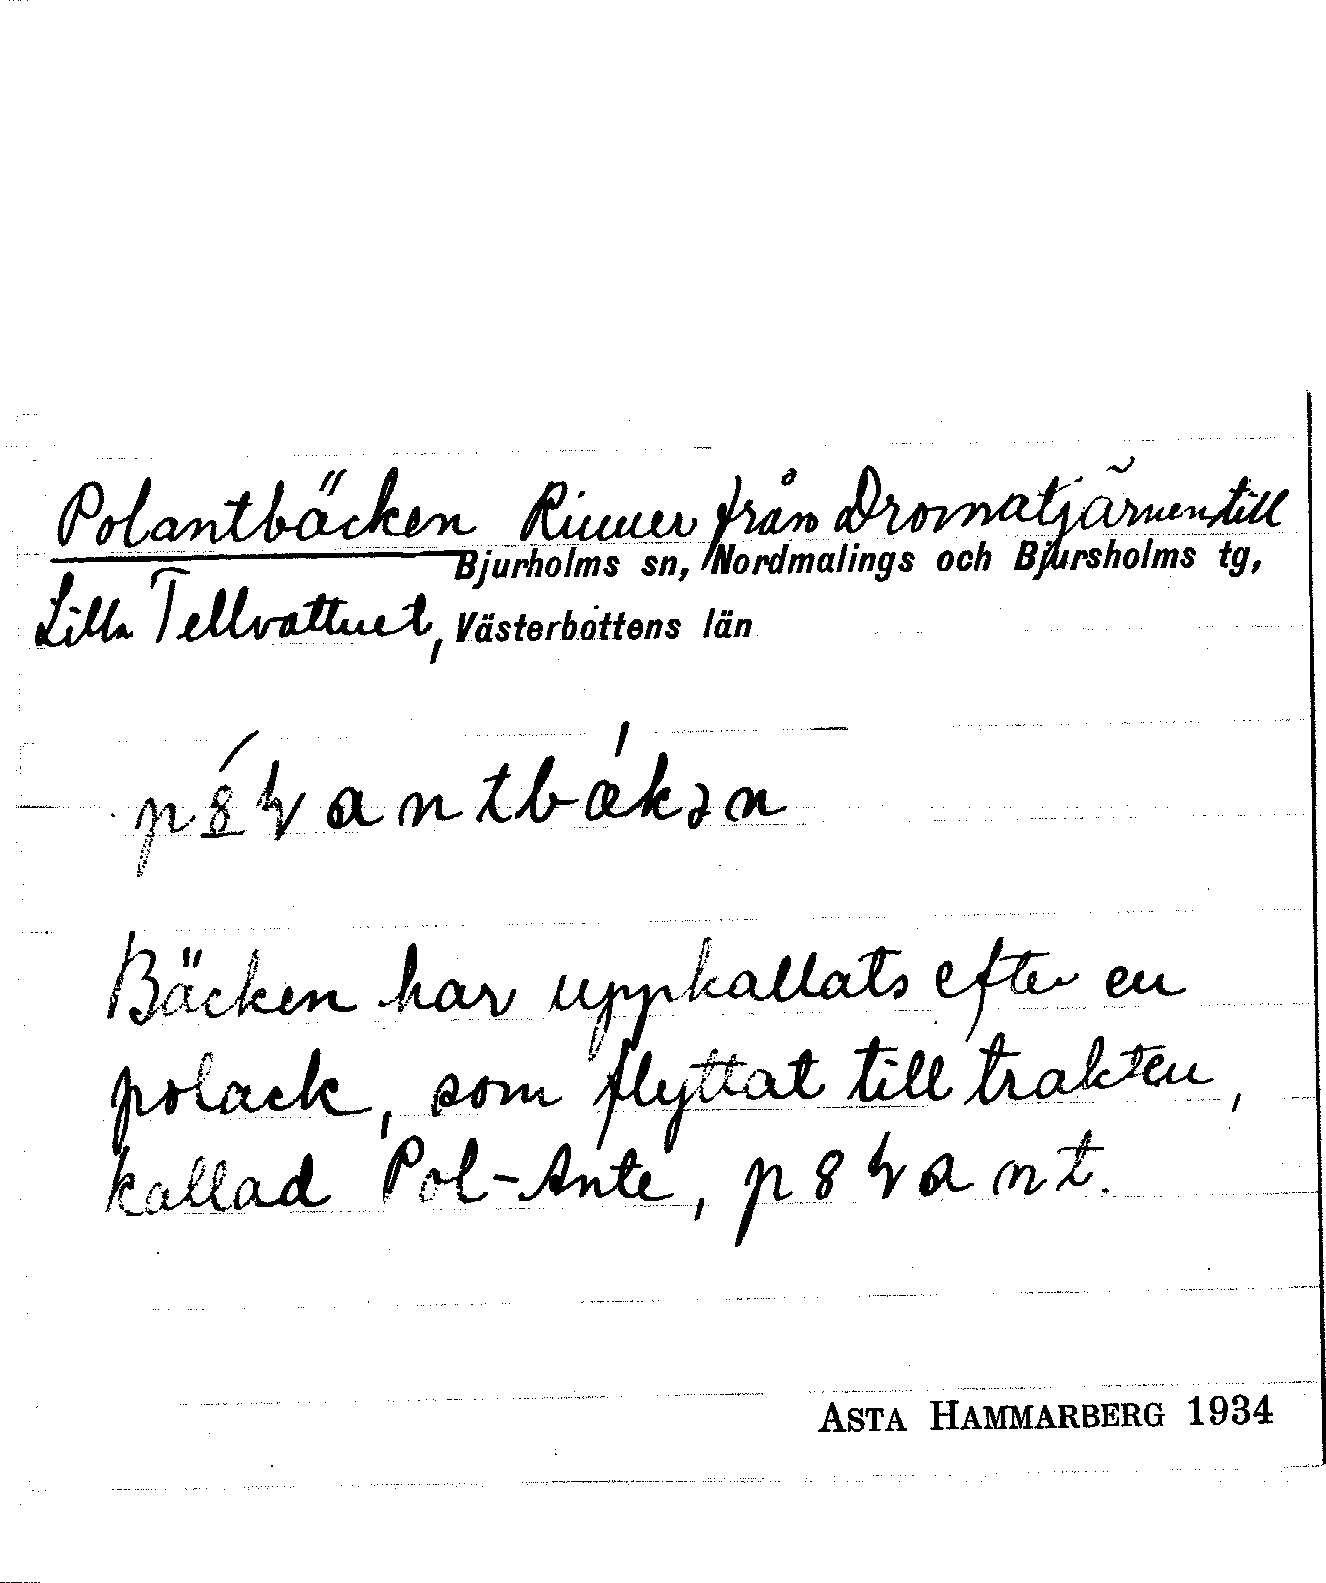 Polantbäcken Rinner från Dromatjärnen till
Bjurholms sn, Nordmalings och Bjursholms tg,
Lilla Tellvattnet, Västerbottens län
Bäcken har uppkallats efter en
polack, som flyttat till trakten,
kallad Pol-Ante,
ASTA HAMMARBERG 1934